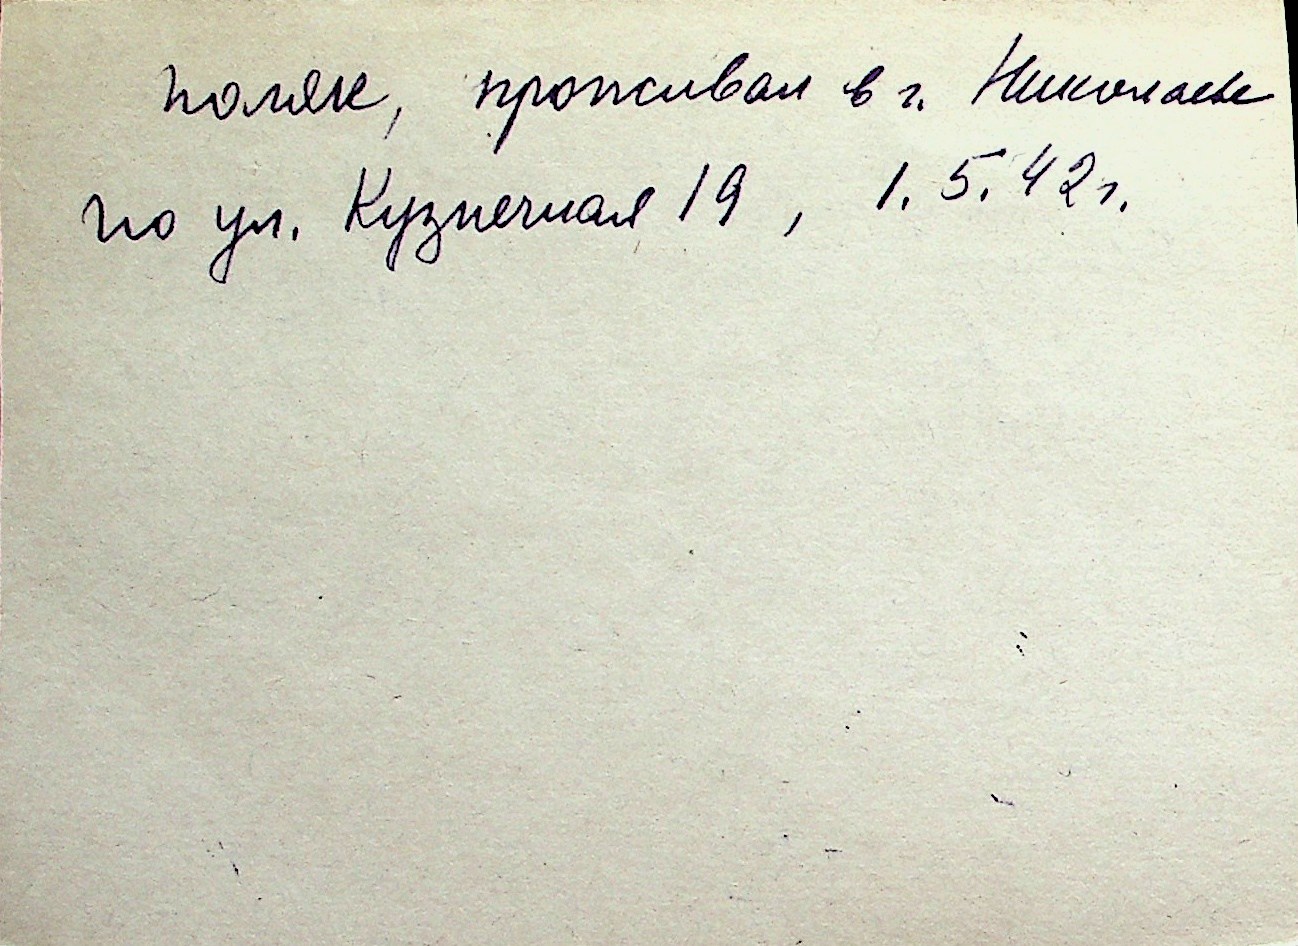 поляк, проживал в г. Николаеве
по ул. Кузнечная 19, 1.5.42 г.